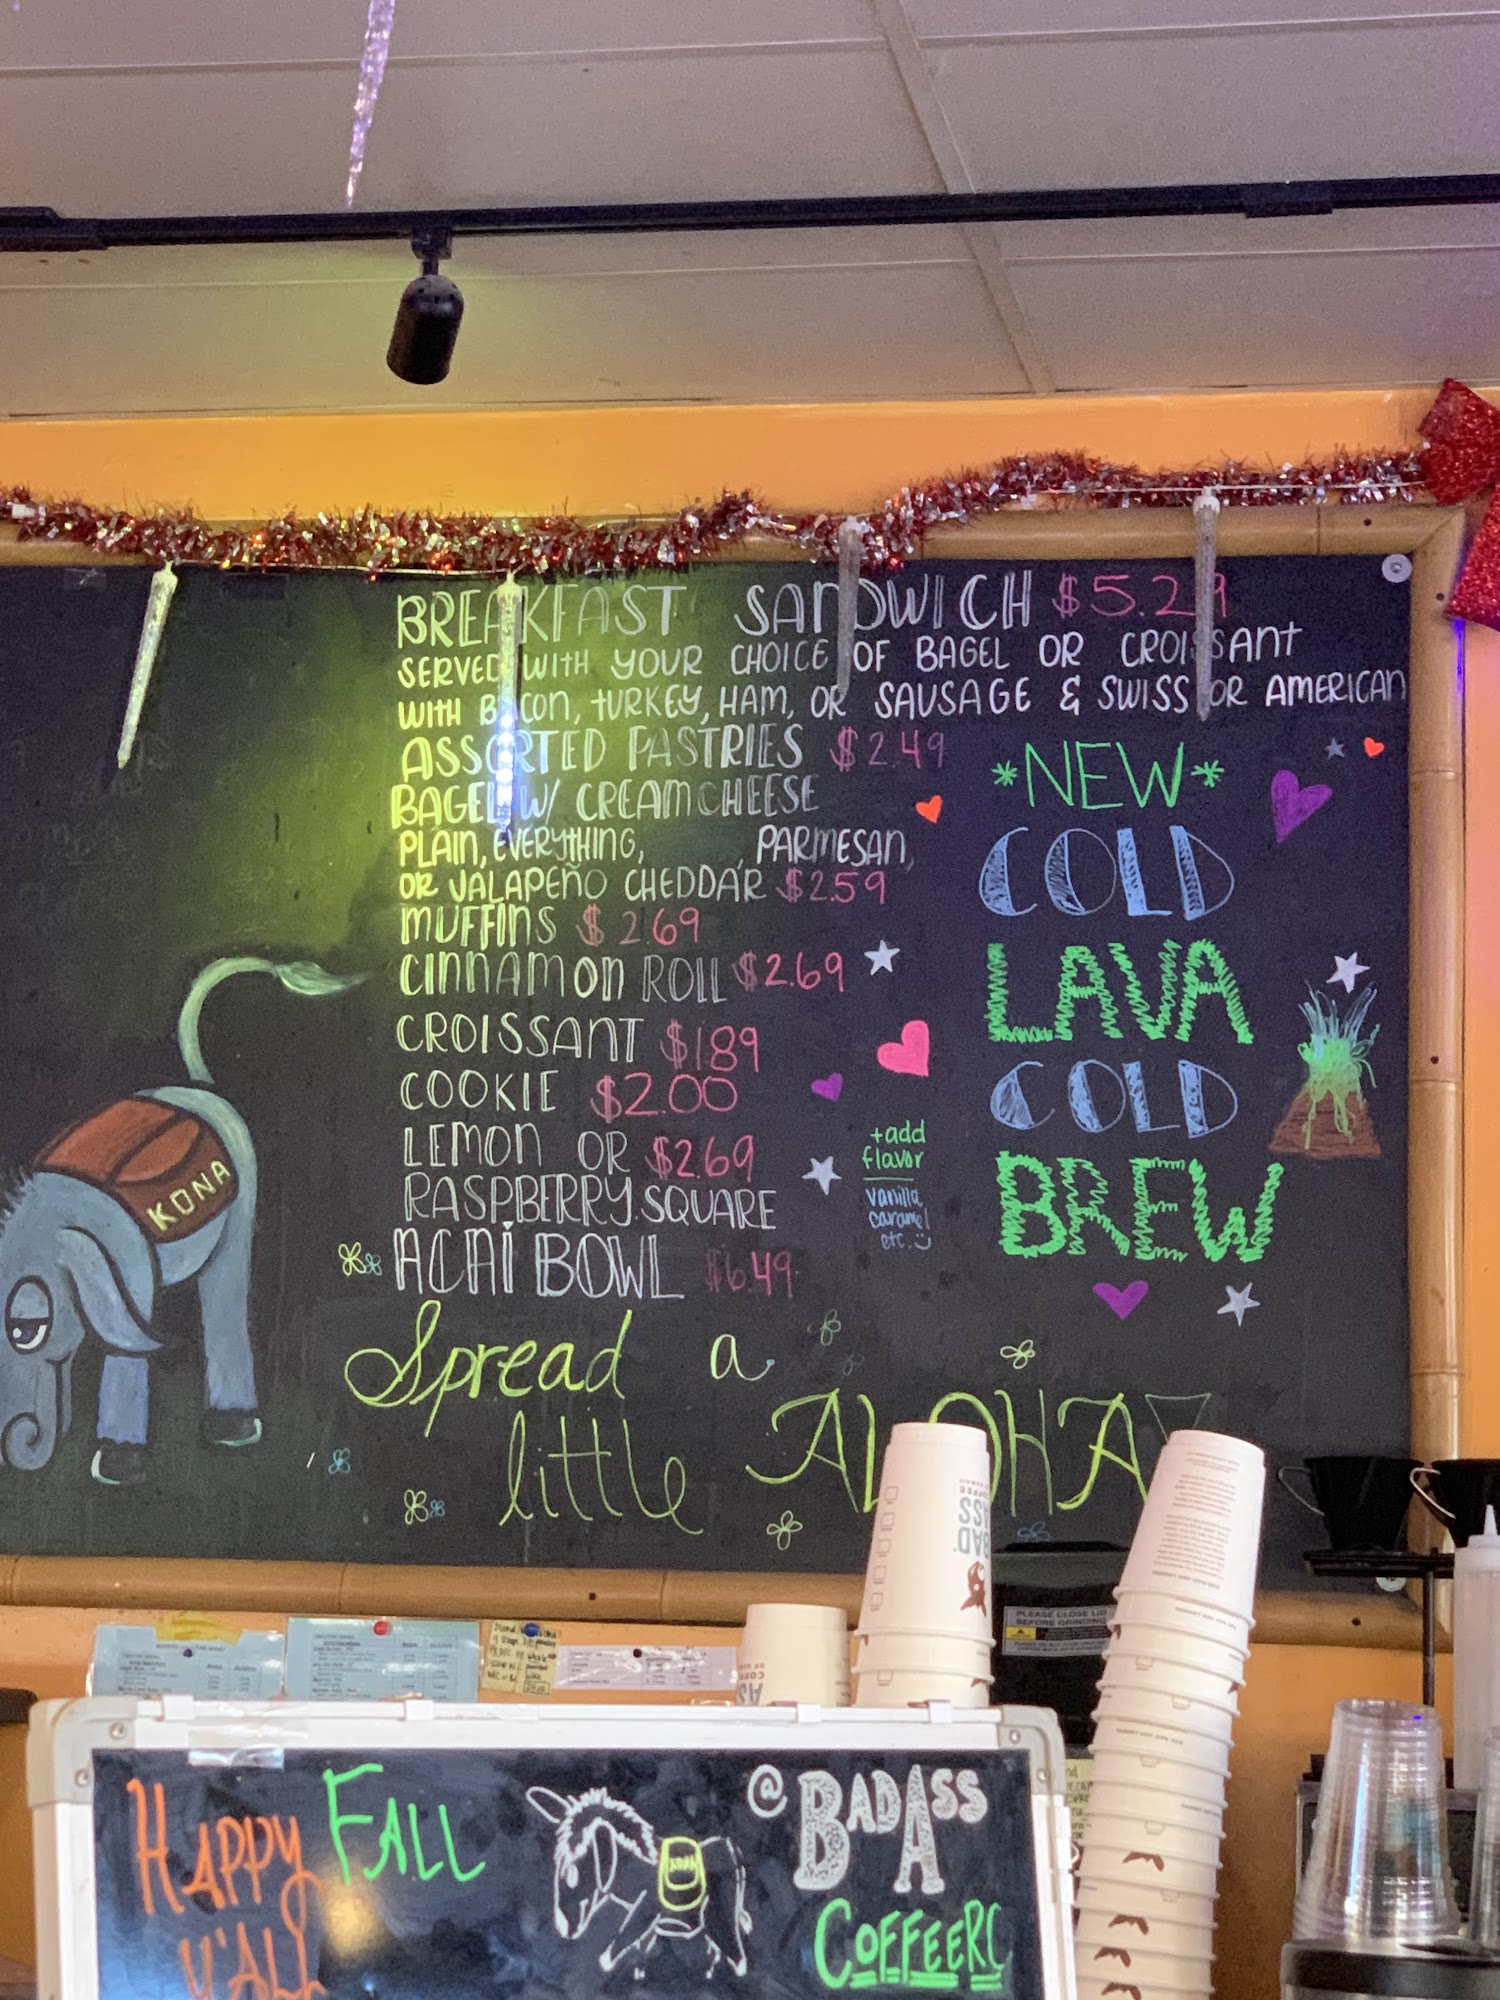 BREAKFAST SANDWICH $5.29
SERVED WITH YOUR CHOICE OF BAGEL OR CROISSANT
WITH BACON, TURKEY, HAM, OR SAUSAGE & SWISS OR AMERICAN
ASSORTED PASTRIES $2.49
BAGEL W/ CREAM CHEESE
PLAIN, EVERYTHING, , PARMESAN,
OR JALAPEÑO CHEDDAR $2.59
MUFFINS $2.69
CINNAMON ROLL $2.69
CROISSANT $1.89
COOKIE $2.00
LEMON OR $2.69
RASPBERRY SQUARE
ACAI BOWL $6.49
*NEW*
COLD
LAVA
COLD
BREW
+add
flavor
vanilla
caramel
etc.
KONA
Spread a
little ALOHA
BAD
ASS
COFFEE
PLEASE CLOSE LID
BEFORE GRINDING
HAPPY FALL
Y'ALL
@BADASS
COFFEERC